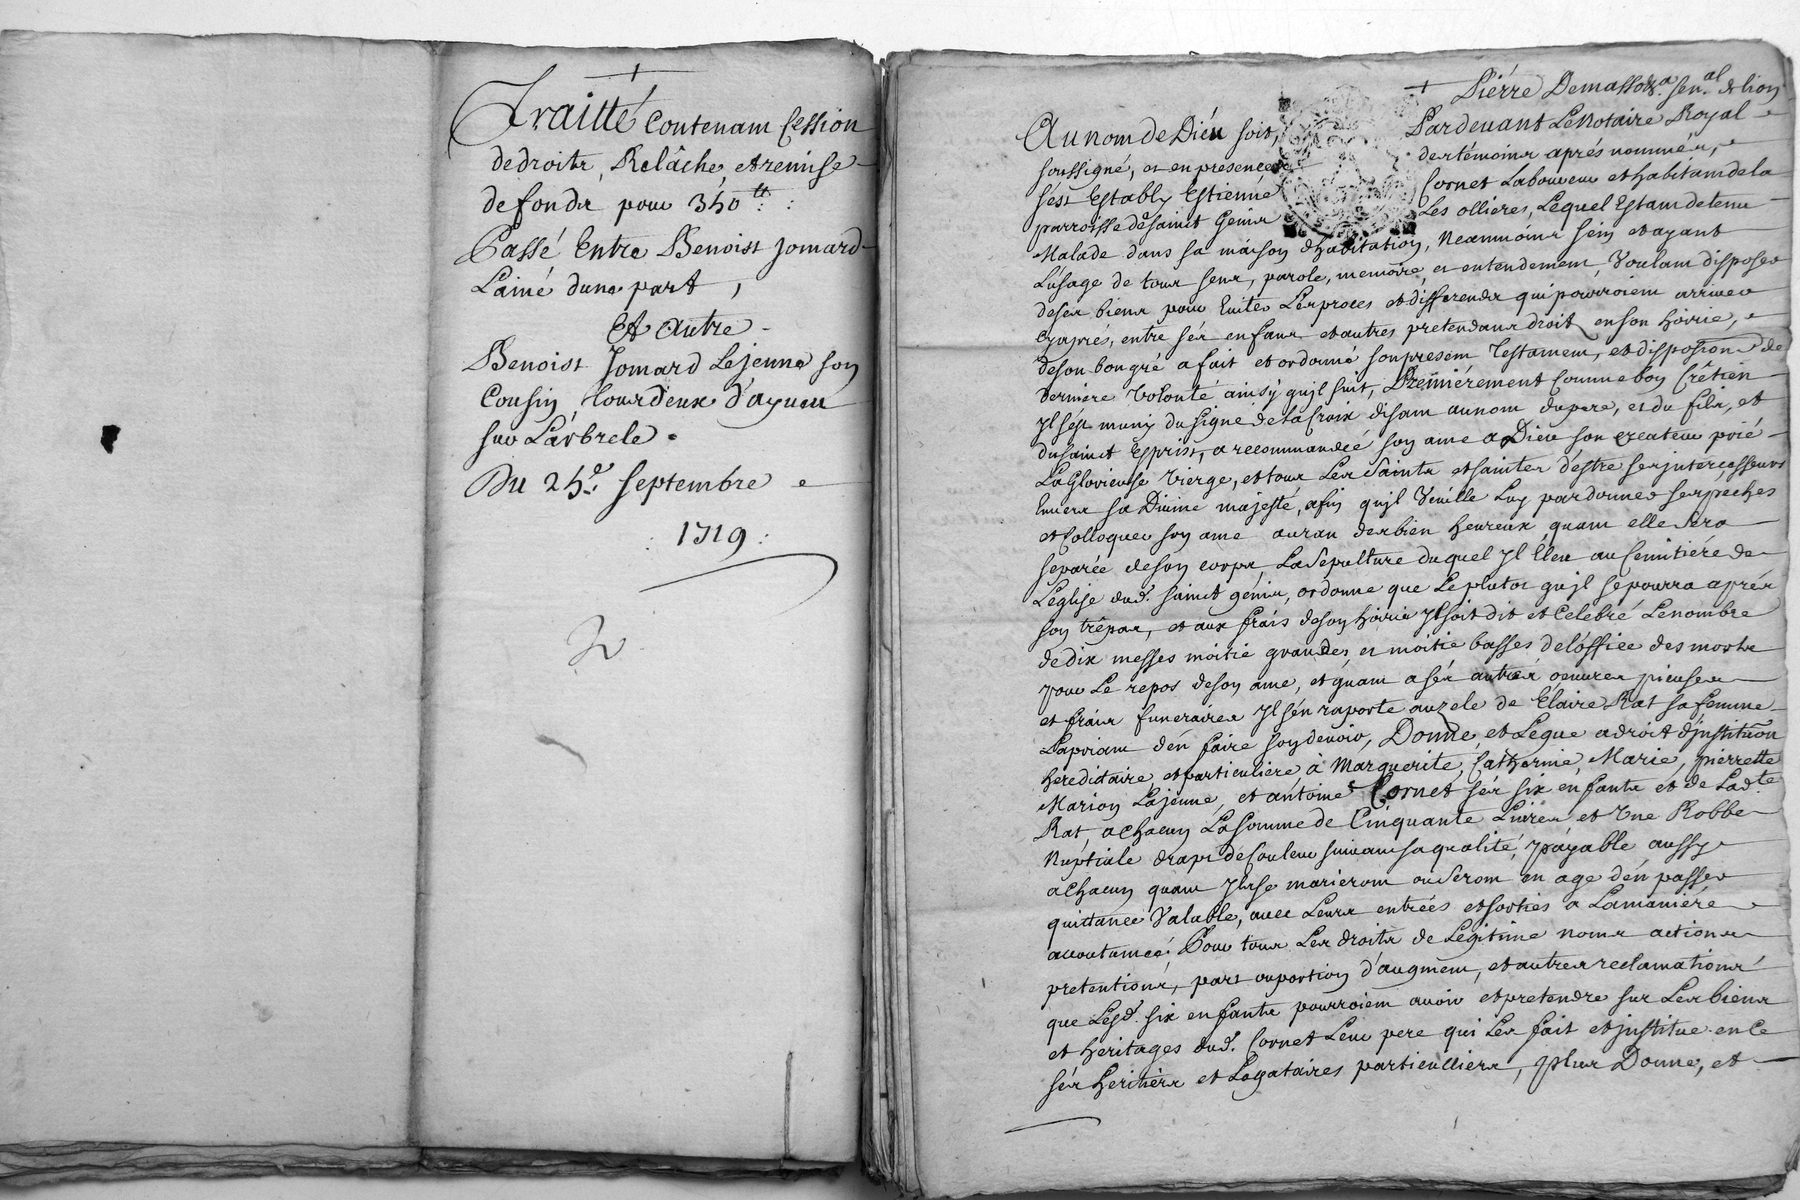 Traitté Contenant Cession
de droits, Relâche, et remise
de fonds pour 340 ₶
Passé Entre Benoist Jomard
L'ainé dune part,
Et autre
Benoist Jomard Le jeune son
Cousin, tous deux d'ayeux
sur Larbrele.
Du 24.e septembre
1719
+ Pierre Demasso sen.al de lion
Au nom de Dieu soit, Pardevant Le Notaire Royal
soussigné, et en presence des témoins aprés nommés,
s'est Estably Estienne Cornet Laboureur et habitant de la
parroisse de sainct Genis Les ollieres, Lequel Estant detenu
Malade dans sa maison d'habitation, Neanmoins sein et ayant
L'usage de tous sens, parole, memoire, et entendement, Voulant disposer
de ses biens pour Eviter Les procés et differends qui pourroient arriver
cy aprés, entre sés enfans et autres pretendans droit en son hoirie,
de son bon gré a fait et ordonné son present Testament, et disposion de
derniere Volonté ainsy qu'jl suit, Premiérement Comme bon Crêtien
Jl s'ést muny du signe de la Croix disant au nom du pere, et du fils, et
du sainct Esprist, a recommandéé son ame a Dieu son createur prié
La Glorieuse Vierge, et tous Les Saints et saintes d'estre ses jntercesseurs
Envers sa Divine majesté, afin qu'jl Veuille Luy pardonner ses peches
et Colloquer son ame au ran des bien heureux quant elle Sera
separée de son corps, La Sepulture duquel Jl Eleu au Cemitiére de
L'église dud. sainct génis, ordonne que Le plutot qu'jl se pourra aprés
son trépas, et aux frais de son hoirie Jl soit dit et Celebré Le nombre
de dix messes moitié grandes et moitié basses de l'office des morts
pour Le repos de son ame, et quant a sés autres oeuvres pieuses
et frais funeraires Jl s'én raporte au zele de Claire Rat sa femme
La priant d'én faire son devoir, Donne et Legue a droit d'jnstitution
hereditaire, et particuliere, à Marguerite, Catherine, Marie, pierrette
Marion La jeune, et antoine Cornet sés six enfants et de Lad.te
Rat, a chacun La somme de Cinquante Livres et Une Robbe
Nuptiale drap de Couleur suivant sa qualité, payable aussy
a chacun quant Jls se marieront ou seront en age d'én passer
quittance Valable, avec Leurs entrées et sorties a La maniéré
accoutumée; Pour tous Les droits de Legitime noms actions
pretentions, part ou portion d'augment, et autres reclamations
que Lesd. six enfants pourroient avoir et pretendre sur Les biens
et heritages dud. Cornet Leur pere qui Les fait et jnstitue en Ce
sés heritiers et Legataires particulliers, Plus Donne, et